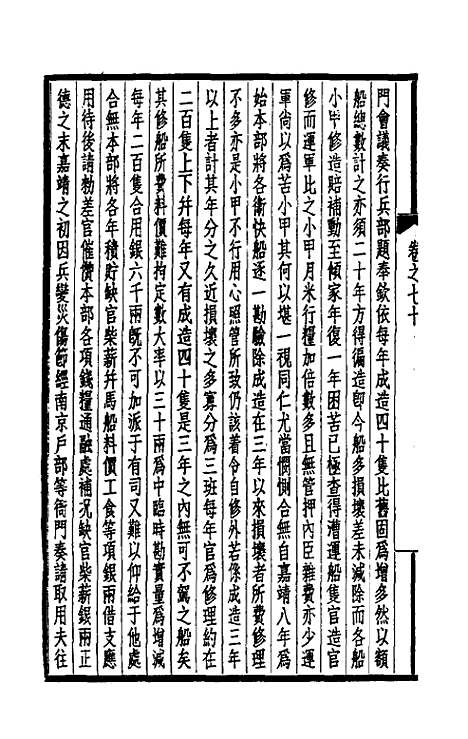 卷之七十
門會議奏行兵部題奉欽依每年成造四十隻比舊固爲增多然以額
船總數計之亦須二十年方得徧造卽今船多損壞差未減除而各船
小甲修造賠補動至傾家年復一年困苦已極查得漕運船隻官造官
修而運軍比之小甲月米行糧加倍數多且無管押內臣雜費亦少運
軍尚以爲苦小甲其何以堪一視同仁尤當憫惻合無自嘉靖八年爲
始本部將各衛快船逐一勘驗除成造在三年以來損壞者所費修理
不多亦是小甲不行用心照管所致仍該着令自修外若係成造三年
以上者計其年分之久近損壞之多寡分爲三班每年官爲修理約在
二百隻上下幷每年又有成造四十隻是三年之內無可不駕之船矣
其修船所費料價難拘定數大率以三十兩爲中臨時勘實量爲增減
每年二百隻合用銀六千兩旣不可加派于有司又難以仰給于他處
合無本部將各年積貯缺官柴薪幷馬船料價工食等項銀兩借支應
用待後請勑差官催儹本部各項錢糧通融處補況缺官柴薪銀兩正
德之末嘉靖之初因兵變災傷節經南京戶部等衙門奏請取用夫往